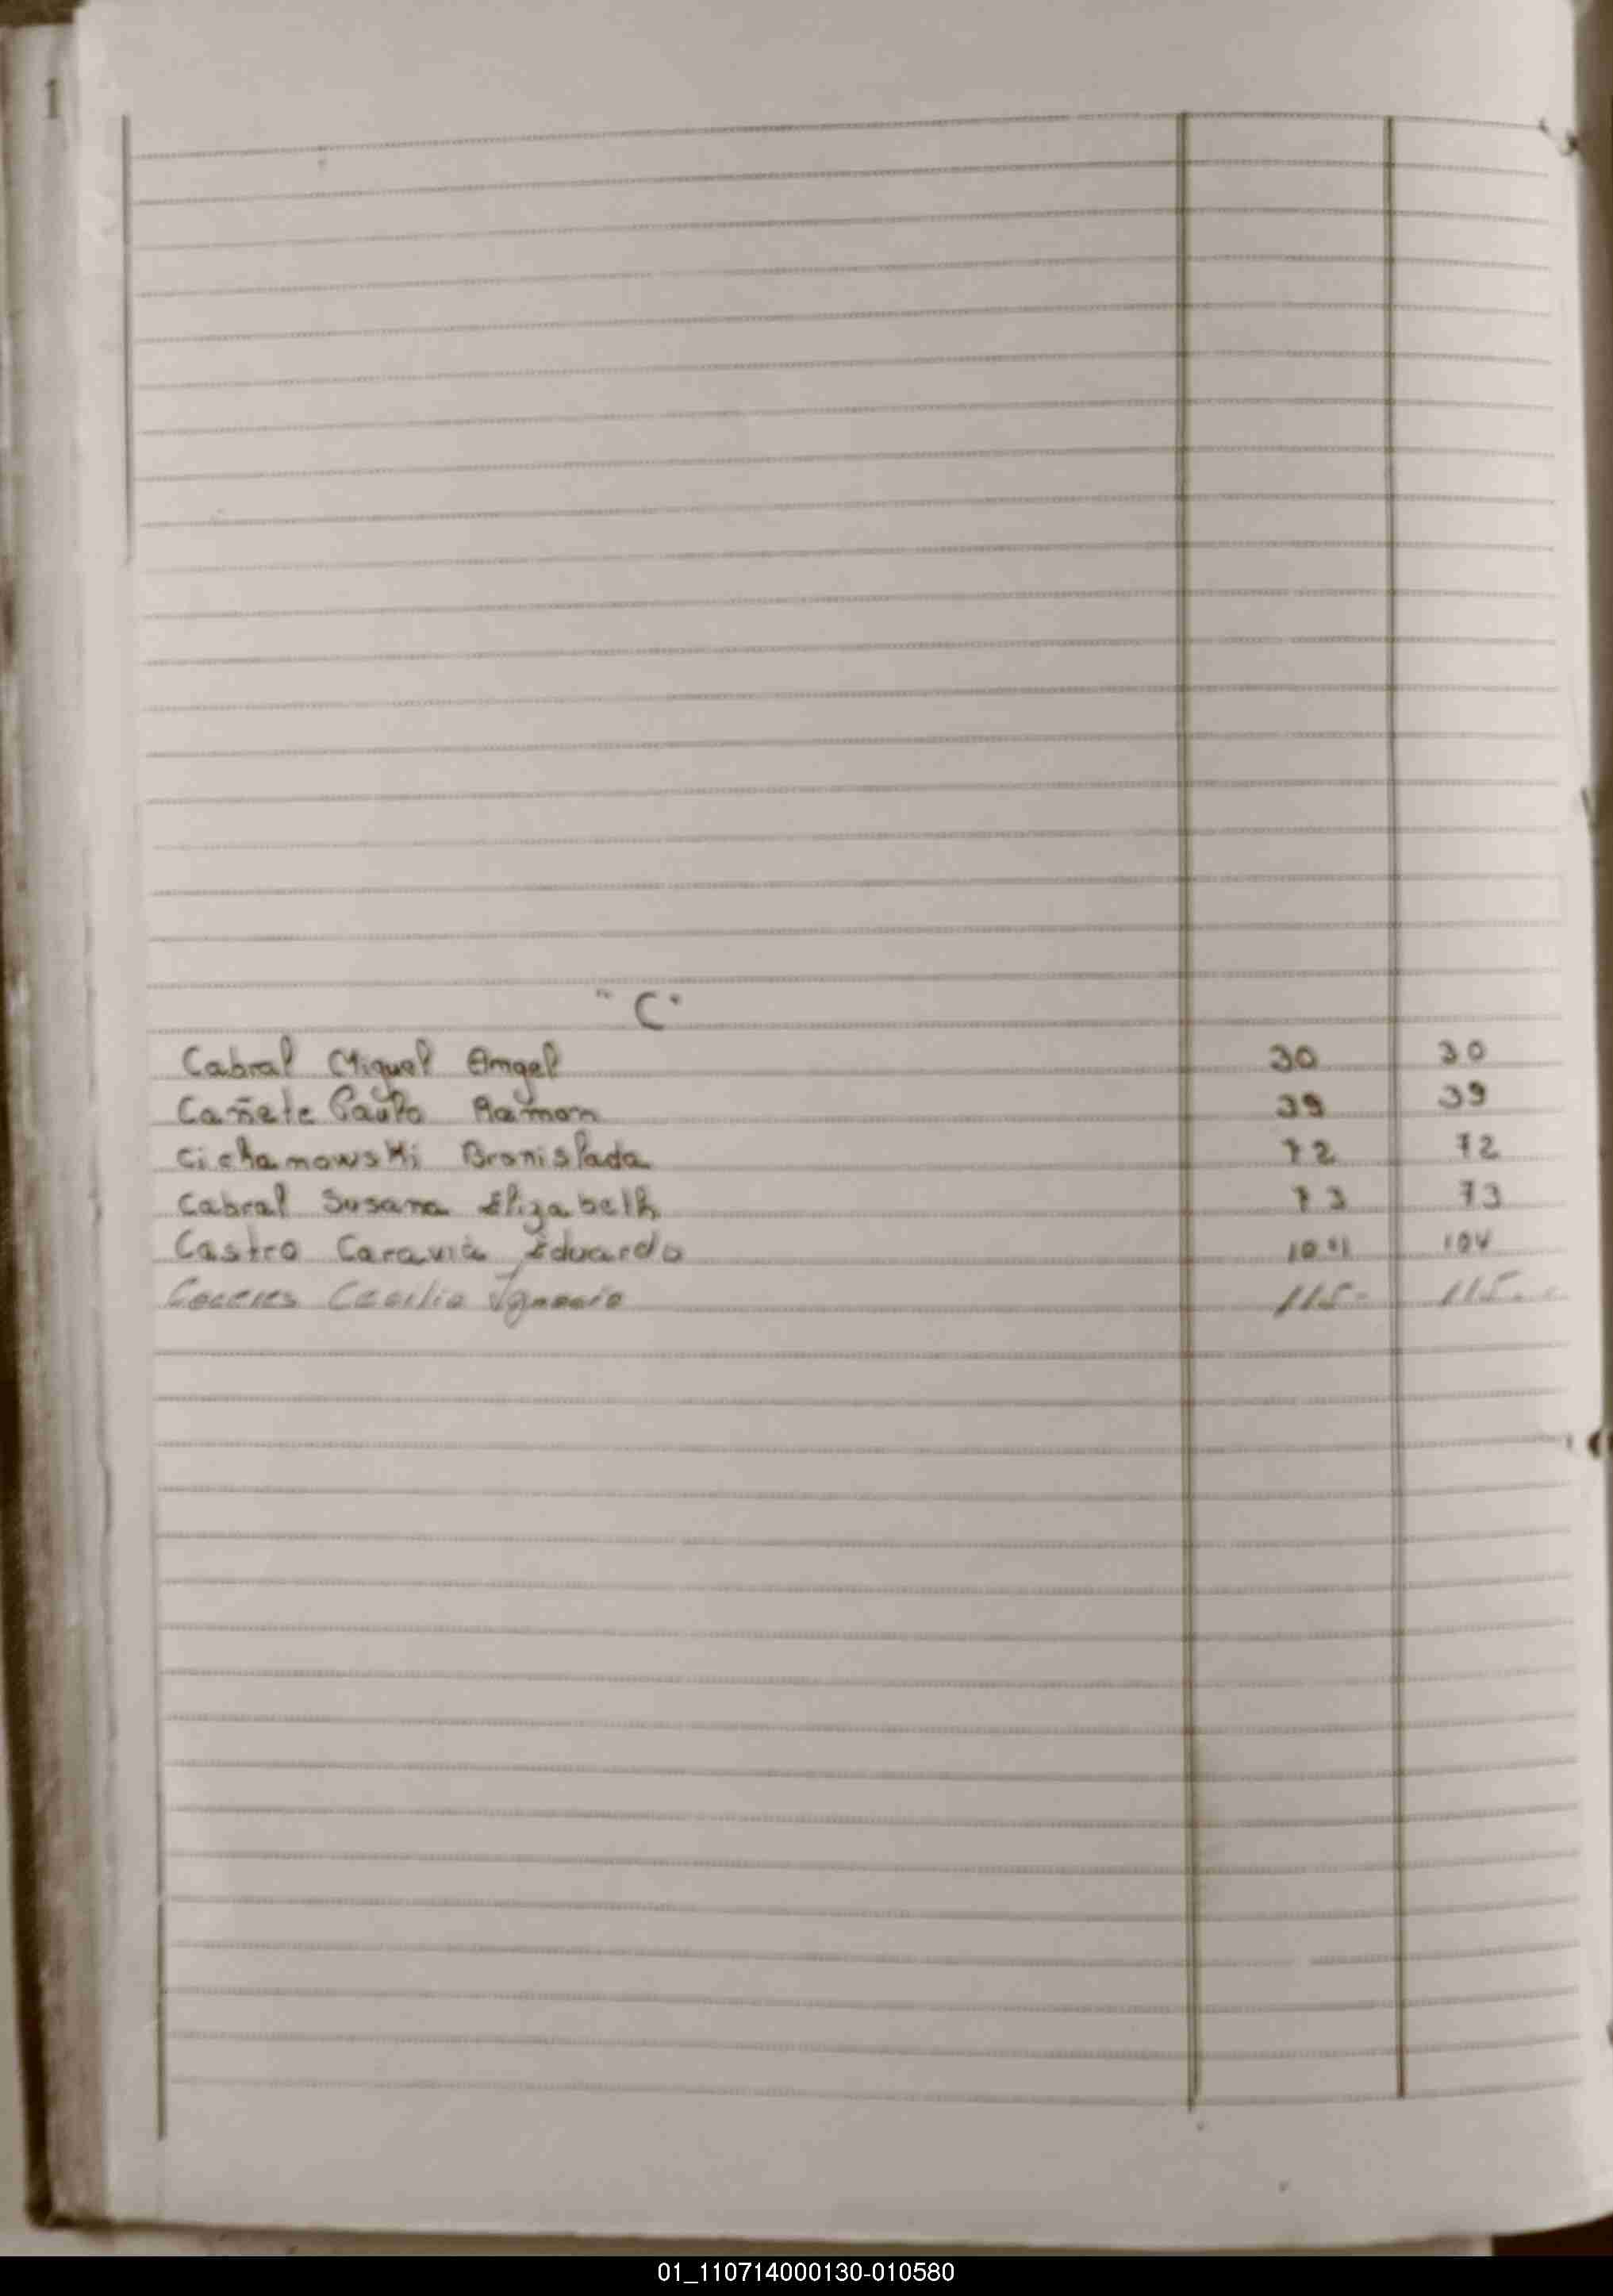 1
"C"
Cabral Miguel Angel 30 30
Cañete Paulo Ramon 39 39
Cichanowski Bronislada 72 72
Cabral Susana Elizabeth 73 73
Castro Caravia Eduardo 104 104
Caceres Cecilio Ignacio 115- 115.
01_110714000130-010580